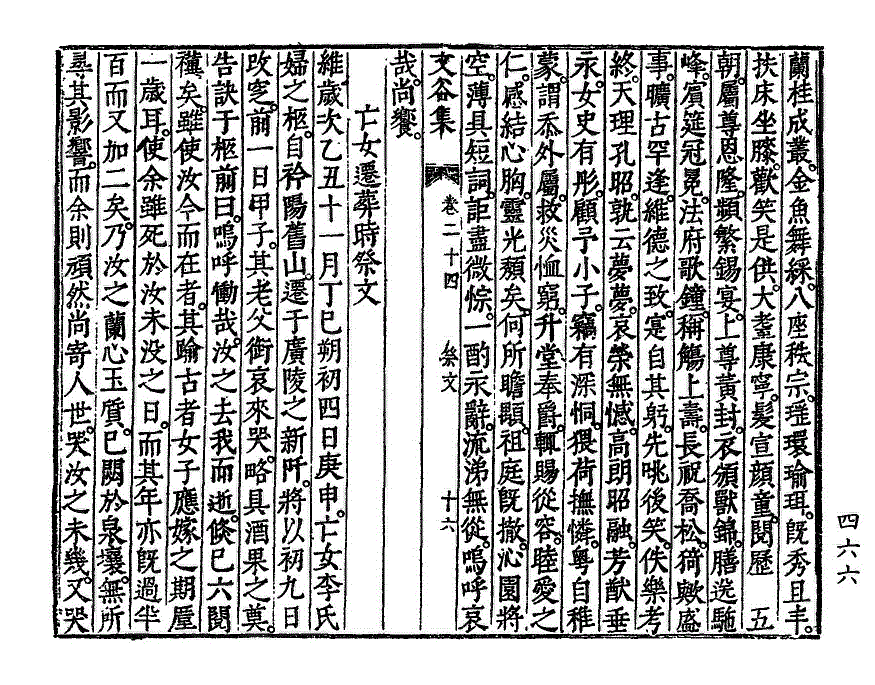 蘭桂成叢。金魚舞綵。八座秩宗。瑤環瑜珥。旣秀且丰。
扶床坐膝。歡笑是供。大耋康寧。髮宣顔童。閱歷 五
朝。屬尊恩隆。頻繁錫宴。上尊黃封。衣頒獸錦。膳选馳
峰。賓筵冠冕。法府歌鐘。稱觴上壽。長祝喬松。猗歟盛
事。曠古罕逢。維德之致。寔自其躬。先咷後笑。佚樂考
終。天理孔昭。孰云夢夢。哀榮無憾。高朗昭融。芳猷垂
永。女史有彤。顧予小子。竊有深恫。猥荷撫憐。粤自稚
蒙。謂忝外屬。救災恤窮。升堂奉爵。輒賜從容。睦愛之
仁。感結心胸。靈光頹矣。何所瞻顒。祖庭旣撤。沁園將
空。薄具短詞。詎盡微悰。一酌永辭。流涕無從。嗚呼哀
文谷集 卷二十四 祭文 十六
哉。尚饗。
亡女遷葬時祭文
維歲次乙丑十一月丁巳朔初四日庚申。亡女李氏
婦之柩。自衿陽舊山。遷于廣陵之新阡。將以初九日
改窆。前一日甲子。其老父銜哀來哭。略具酒果之奠。
告訣于柩前曰。嗚呼慟哉。汝之去我而逝。倏已六閱
禩矣。雖使汝今而在者。其踰古者女子應嫁之期厪
一歲耳。使余雖死於汝未沒之日。而其年亦旣過半
百而又加二矣。乃汝之蘭心玉質。已閟於泉壤。無所
尋其影響。而余則頑然尚寄人世。哭汝之未幾。又哭
四六六